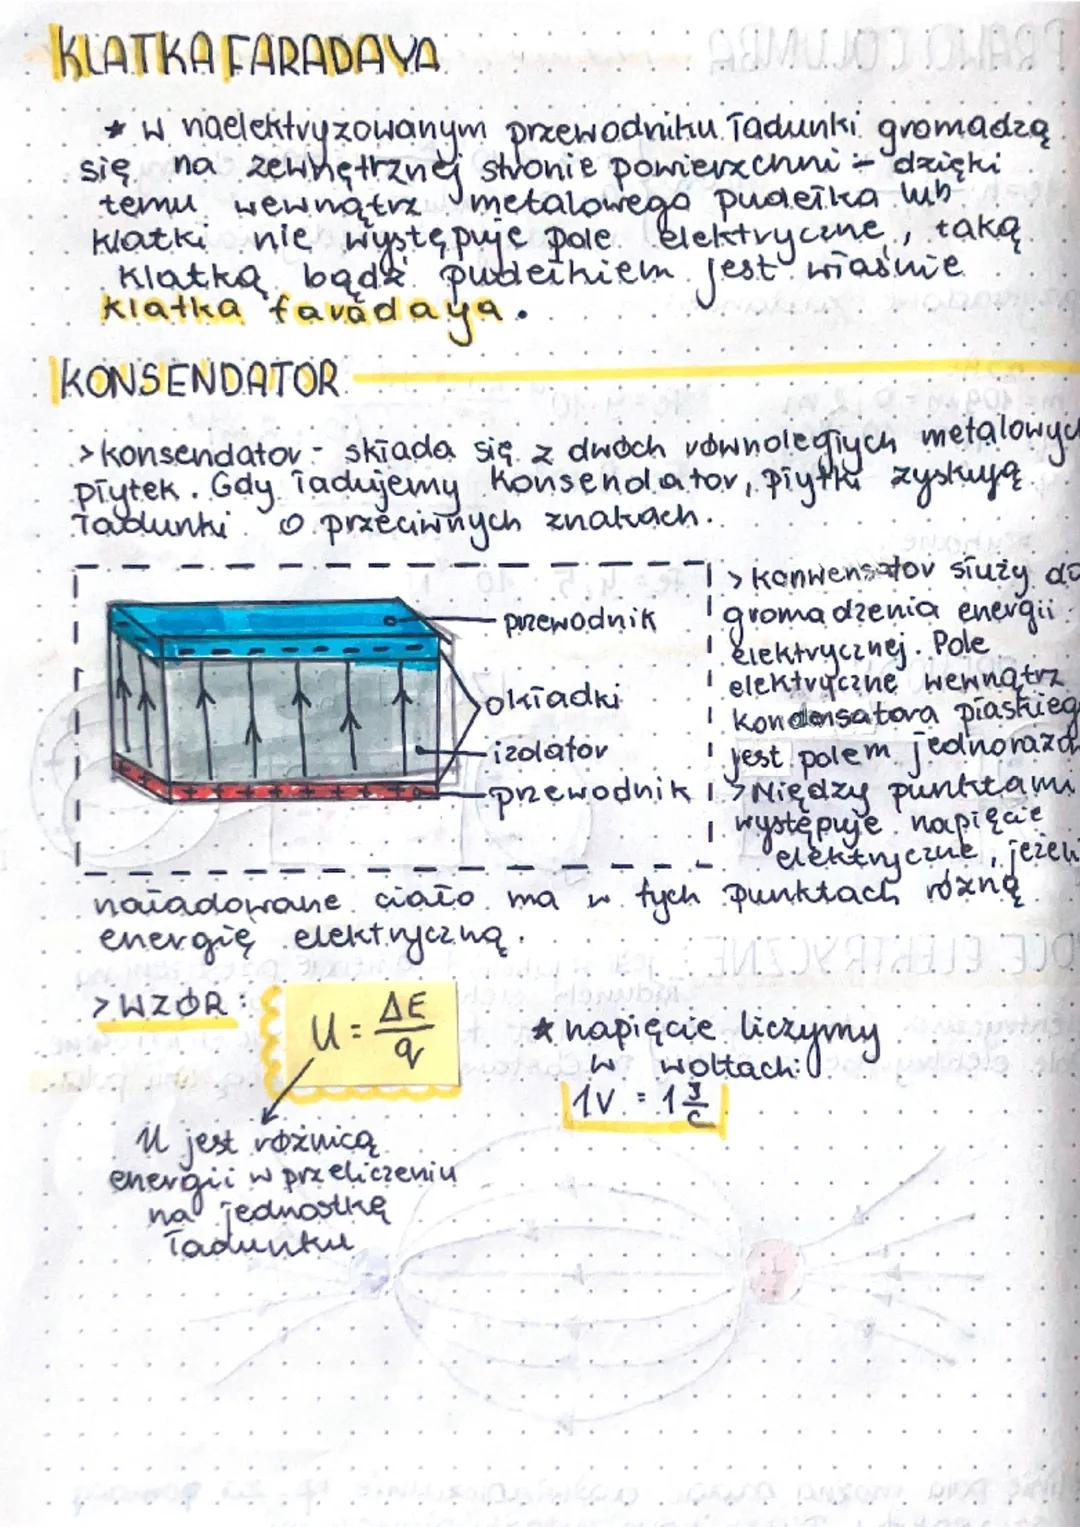 KLATKA FARADAYA
* w naelektryzowanym przewodniku ładunki gromadzą
się na zewnętrznej stronie powierzchni - dzięki
temu wewnątrz metalowego pudełka lub
klatki nie występuje pole elektryczne, taką
klatką bądź pudełkiem jest właśnie
klatka faradaya.
KONSENDATOR
> konsendator - składa się z dwóch równoległych metalowyc
płytek. Gdy ładujemy konsendator, płytki zyskują
ładunki o przeciwnych znakach.
przewodnik
okładki
izolator
przewodnik
> konwensator służy do
gromadzenia energii
elektrycznej. Pole
elektryczne wewnątrz
kondensatora płaskieg
jest polem jednorazo
> Między punktami
występuje napięcie
elektryczne, jeżeli
naładowane ciało ma w tych punktach różną
energię elektryczną.
> WZÓR:
U = ΔE/q
U jest różnicą
energii w przeliczeniu
na jednostkę
ładunku
* napięcie liczymy
w woltach:
1V = 1 J/C